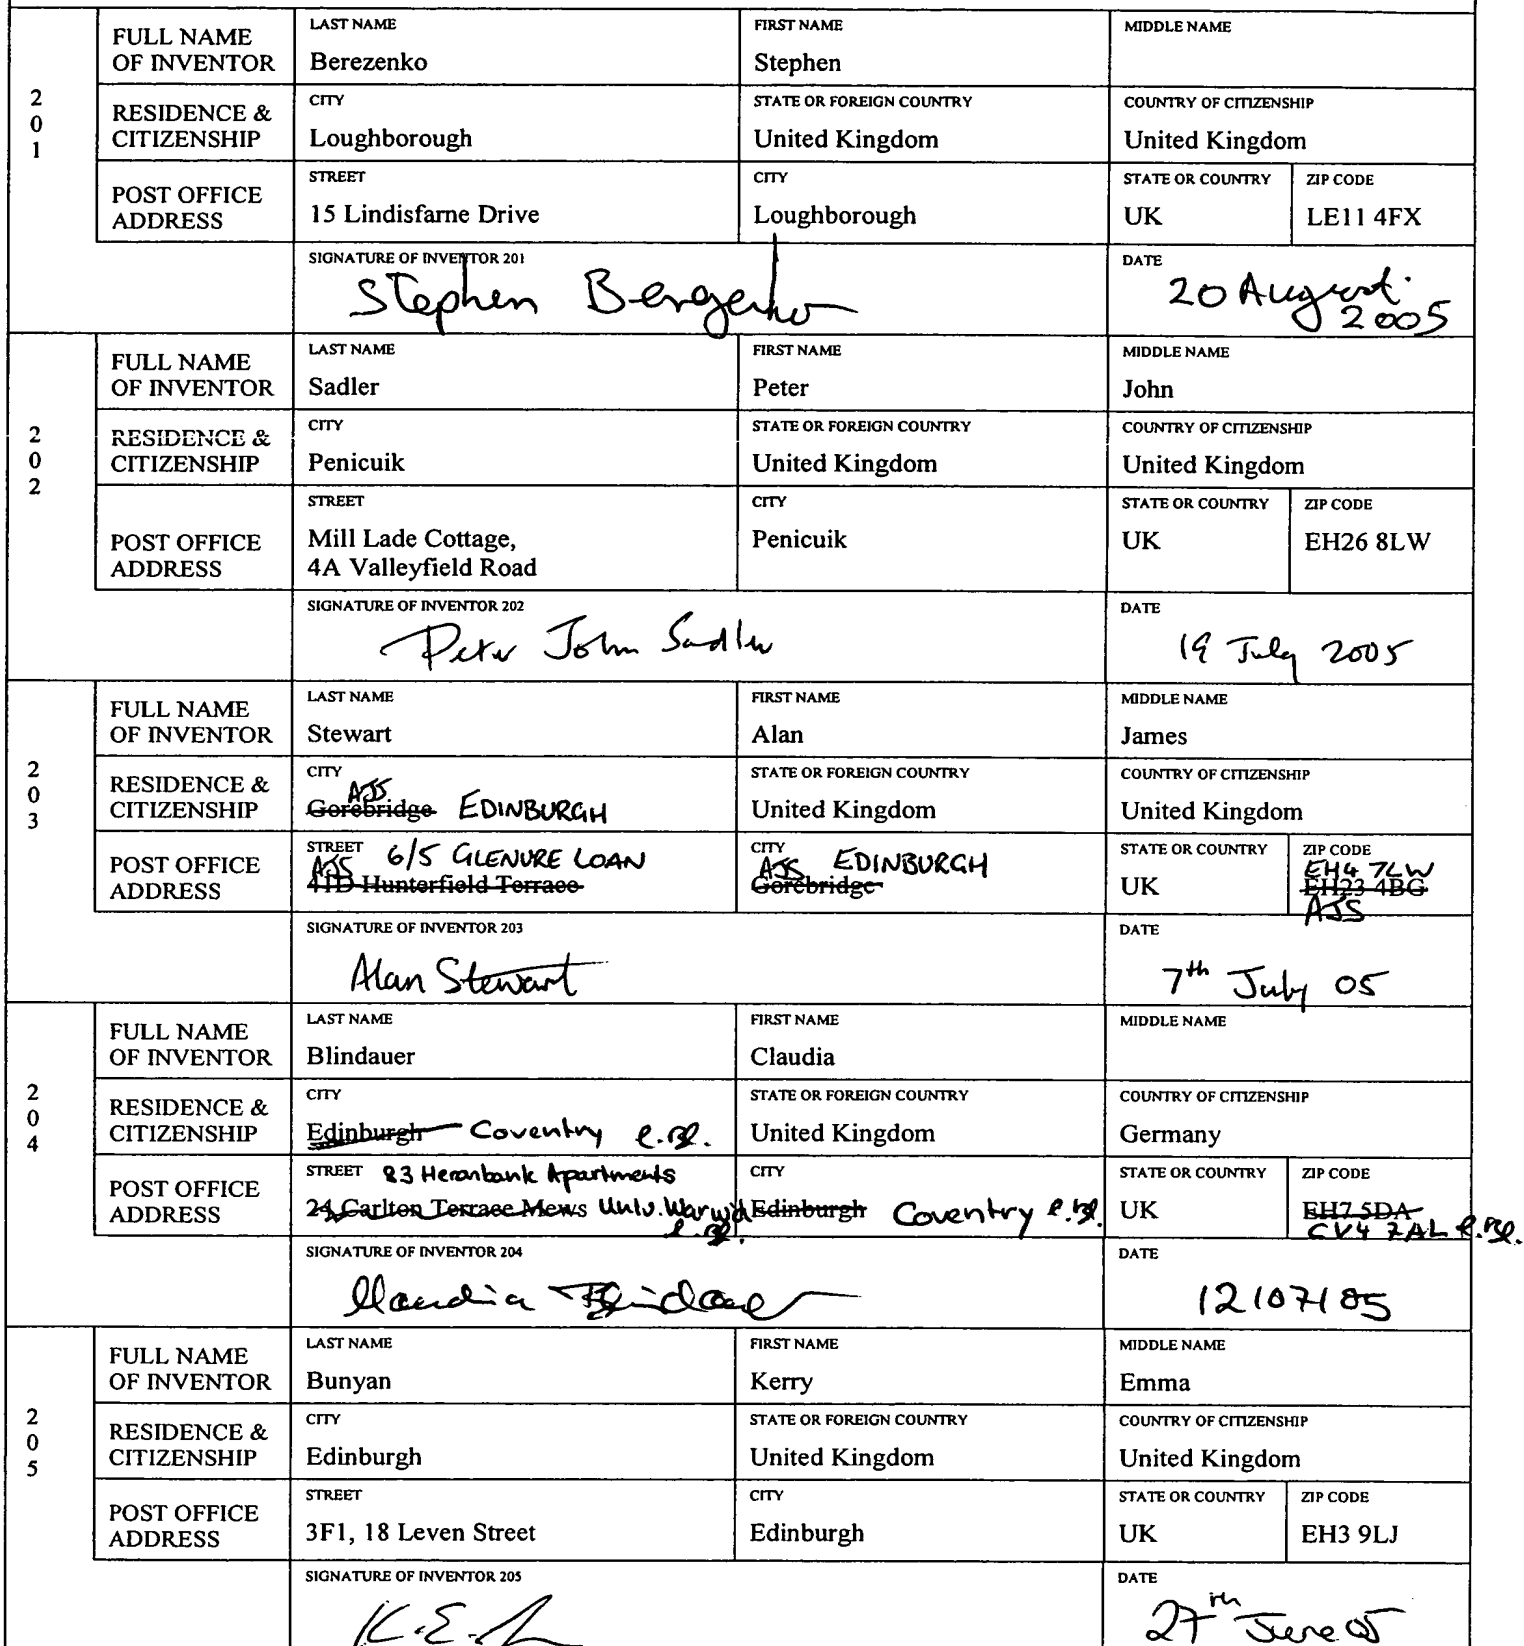 201
FULL NAME OF INVENTOR
LAST NAME
Berezenko
FIRST NAME
Stephen
MIDDLE NAME
RESIDENCE & CITIZENSHIP
CITY
Loughborough
STATE OR FOREIGN COUNTRY
United Kingdom
COUNTRY OF CITIZENSHIP
United Kingdom
POST OFFICE ADDRESS
STREET
15 Lindisfarne Drive
CITY
Loughborough
STATE OR COUNTRY
UK
ZIP CODE
LE11 4FX
SIGNATURE OF INVENTOR 201
Stephen Berezenko
DATE
20 August
2005
202
FULL NAME OF INVENTOR
LAST NAME
Sadler
FIRST NAME
Peter
MIDDLE NAME
John
RESIDENCE & CITIZENSHIP
CITY
Penicuik
STATE OR FOREIGN COUNTRY
United Kingdom
COUNTRY OF CITIZENSHIP
United Kingdom
POST OFFICE ADDRESS
STREET
Mill Lade Cottage,
4A Valleyfield Road
CITY
Penicuik
STATE OR COUNTRY
UK
ZIP CODE
EH26 8LW
SIGNATURE OF INVENTOR 202
Peter John Sadler
DATE
19 July 2005
203
FULL NAME OF INVENTOR
LAST NAME
Stewart
FIRST NAME
Alan
MIDDLE NAME
James
RESIDENCE & CITIZENSHIP
CITY
AJS
Gorebridge EDINBURGH
STATE OR FOREIGN COUNTRY
United Kingdom
COUNTRY OF CITIZENSHIP
United Kingdom
POST OFFICE ADDRESS
STREET 6/5 GLENURE LOAN
AJS
41D Hunterfield Terrace
CITY
AJS EDINBURGH
Gorebridge
STATE OR COUNTRY
UK
ZIP CODE
EH4 7LW
EH23 4BG
AJS
SIGNATURE OF INVENTOR 203
Alan Stewart
DATE
7th July 05
204
FULL NAME OF INVENTOR
LAST NAME
Blindauer
FIRST NAME
Claudia
MIDDLE NAME
RESIDENCE & CITIZENSHIP
CITY
Edinburgh Coventry C.Bl.
STATE OR FOREIGN COUNTRY
United Kingdom
COUNTRY OF CITIZENSHIP
Germany
POST OFFICE ADDRESS
STREET 83 Heronbank Apartments
24 Carlton Terrace Mews Univ. Warwick
C.Bl.
CITY
Edinburgh Coventry C.Bl.
STATE OR COUNTRY
UK
ZIP CODE
EH7 5DA
CV4 7AL C.Bl.
SIGNATURE OF INVENTOR 204
Claudia Blindauer
DATE
12/07/05
205
FULL NAME OF INVENTOR
LAST NAME
Bunyan
FIRST NAME
Kerry
MIDDLE NAME
Emma
RESIDENCE & CITIZENSHIP
CITY
Edinburgh
STATE OR FOREIGN COUNTRY
United Kingdom
COUNTRY OF CITIZENSHIP
United Kingdom
POST OFFICE ADDRESS
STREET
3F1, 18 Leven Street
CITY
Edinburgh
STATE OR COUNTRY
UK
ZIP CODE
EH3 9LJ
SIGNATURE OF INVENTOR 205
K.E.
DATE
27th June 05